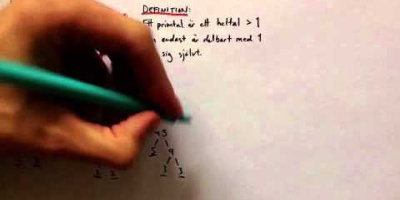 DEFINITION:
Ett primtal är ett heltal > 1
endast är delbart med 1
sig självt.
45
5 9
3 3